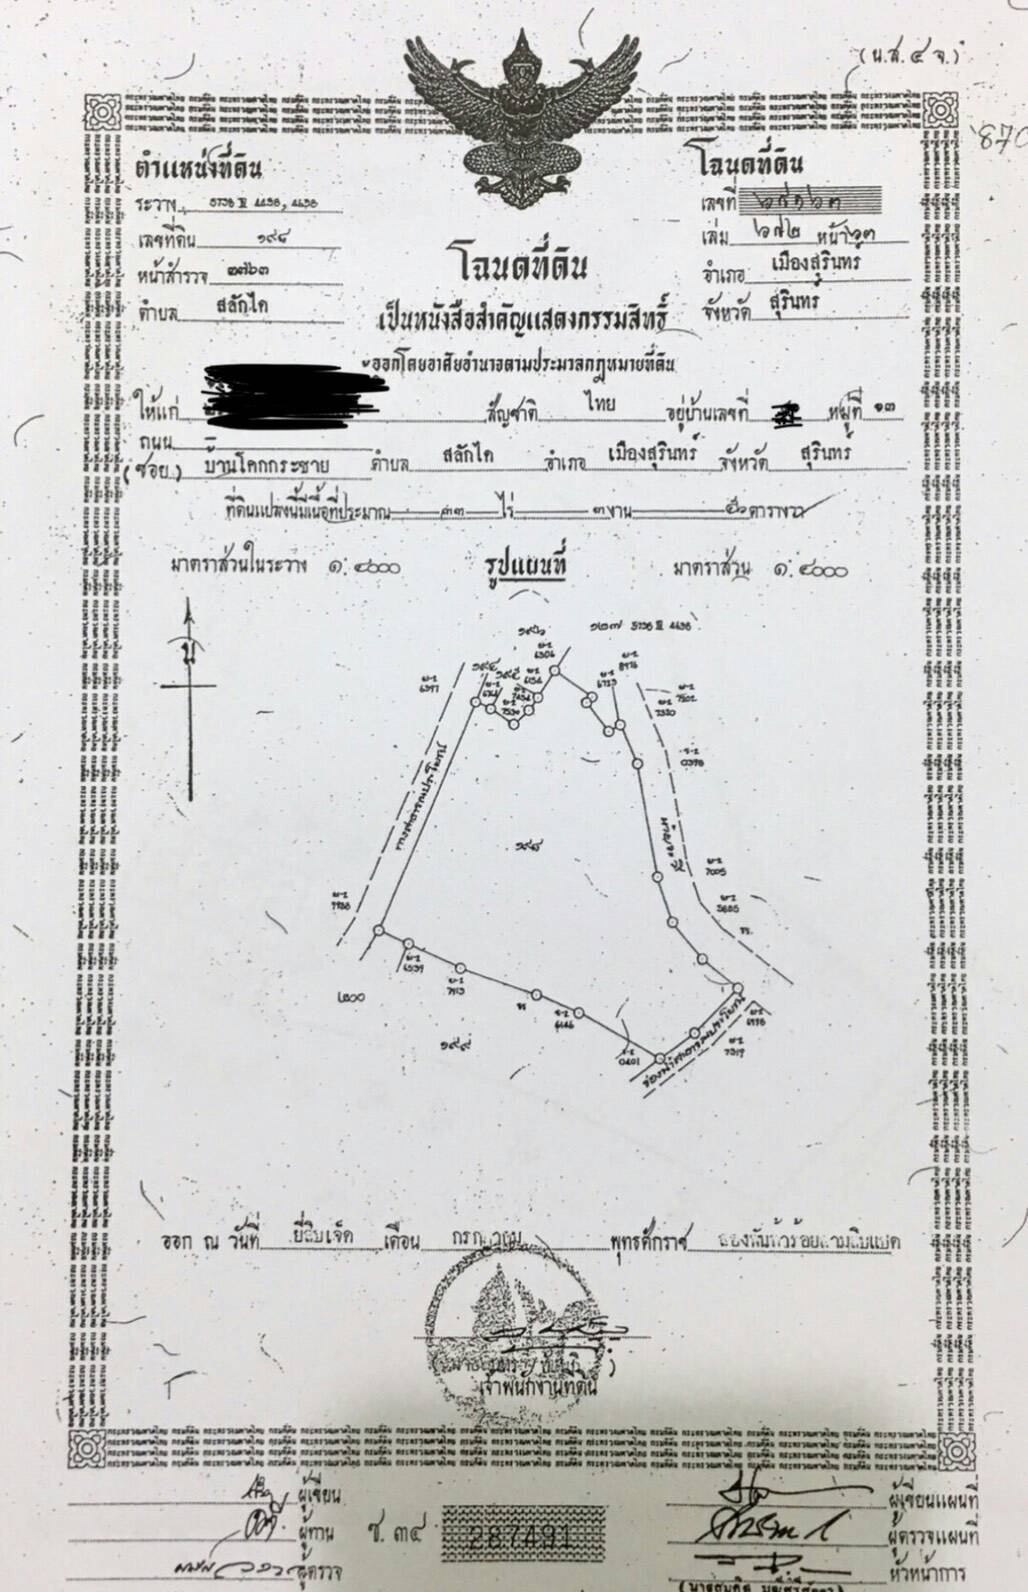 (น.ส. ๔ จ.)
870
ตำแหน่งที่ดิน
ระวาง 5738 4438, 4638
เลขที่ดิน ๑๙๘
หน้าสำรวจ ๓๗๖๓
ตำบล สลักได
โฉนดที่ดิน
เลขที่
เล่ม ๖๗๒ หน้า ๖๓
อำเภอ เมืองสุรินทร์
จังหวัด สุรินทร์
โฉนดที่ดิน
เป็นหนังสือสำคัญแสดงกรรมสิทธิ์
ออกโดยอาศัยอำนาจตามประมวลกฎหมายที่ดิน
ให้แก่ สัญชาติ ไทย อยู่บ้านเลขที่ หมู่ที่ ๑๓
ถนน
(ซอย) บ้านโคกกระชาย ตำบล สลักได อำเภอ เมืองสุรินทร์ จังหวัด สุรินทร์
ที่ดินแปลงนี้มีเนื้อที่ประมาณ ๓๓ ไร่ ๓ งาน ตารางวา
มาตราส่วนในระวาง ๑:๔๐๐๐ รูปแผนที่ มาตราส่วน ๑:๔๐๐๐
น
๑๙๖
๑๒๗
๑๙๔
๑๙๕
6304
8976
6397
6723
7502
7320
0398
ทางสาธารณประโยชน์
ห้วยระวี
๑๙๘
7005
7938
3685
6539
7913
๒๐๐
6646
๑๙๙
0401
6938
7319
ร่องน้ำสาธารณประโยชน์
ออก ณ วันที่ ยี่สิบเจ็ด เดือน กรกฎาคม พุทธศักราช สองพันห้าร้อยสามสิบแปด
เจ้าพนักงานที่ดิน
ผู้เขียน
ผู้ทาน
ผู้ตรวจ
ช. ๓๔ 287491
ผู้เขียนแผนที่
ผู้ตรวจแผนที่
หัวหน้าการ